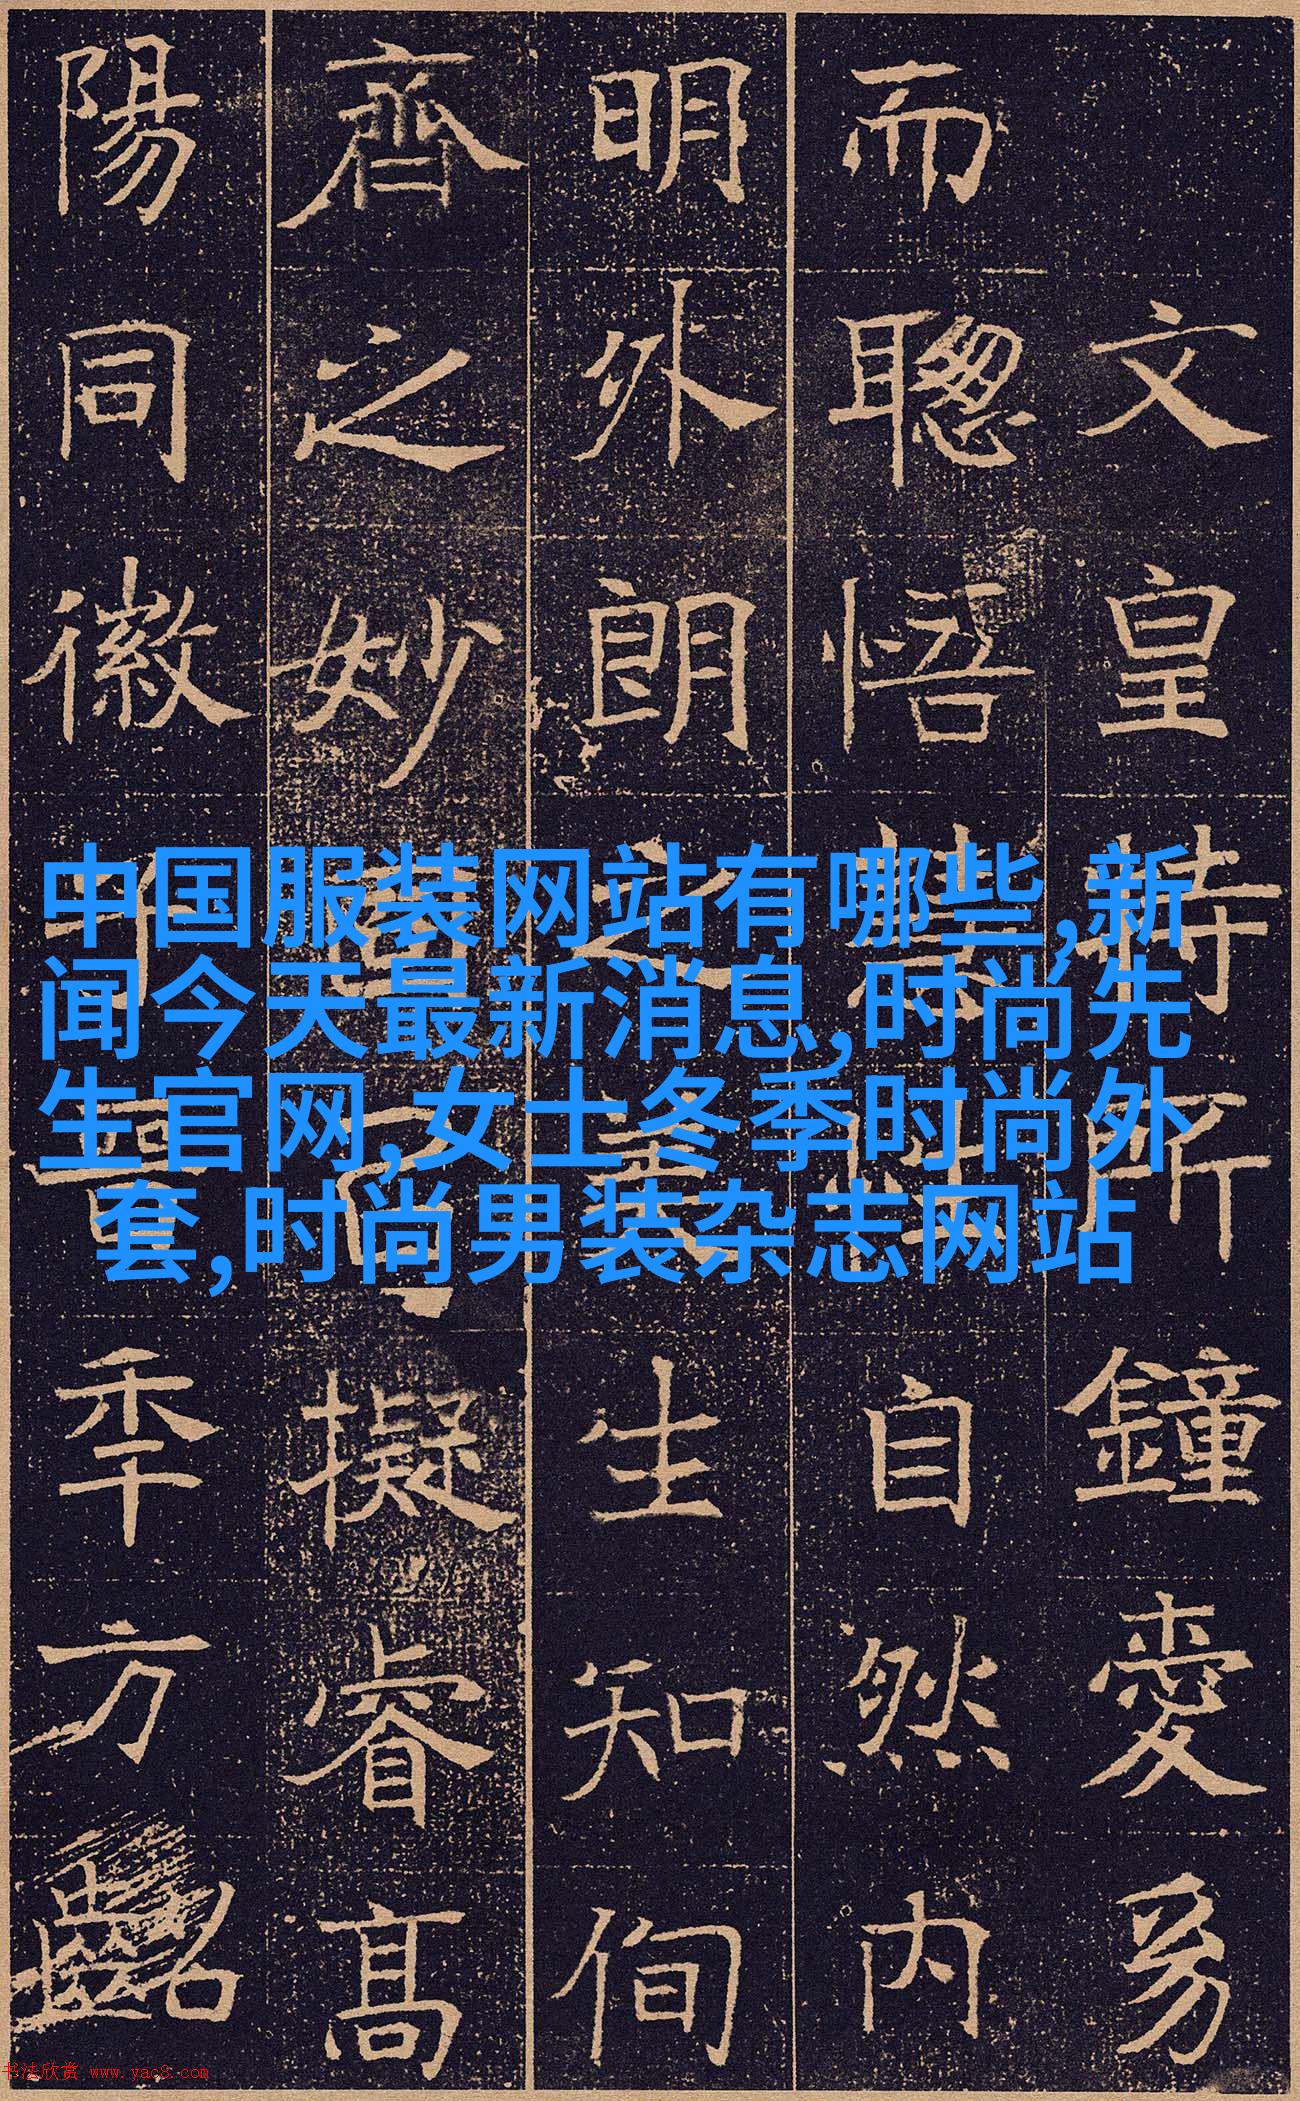 文皇特所鐘愛
而聰悟慧性自然内
明外朗之生知侚
齊之妙擬睿高
陽同徽季方齠
中国服装网站有哪些,新
闻今天最新消息,时尚先
生官网,女士冬季时尚外
套,时尚男装杂志网站
书法欣赏 www.yac8.com